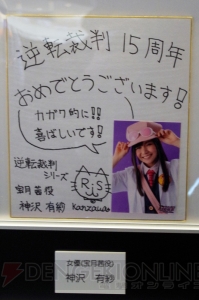 逆転裁判 15周年
おめでとうございます!
カガク的に!!
喜ばしいです!
逆転裁判
シリーズ
宝月茜役
神沢 有紗
Kanzawa
女優(宝月茜役)
神沢 有紗